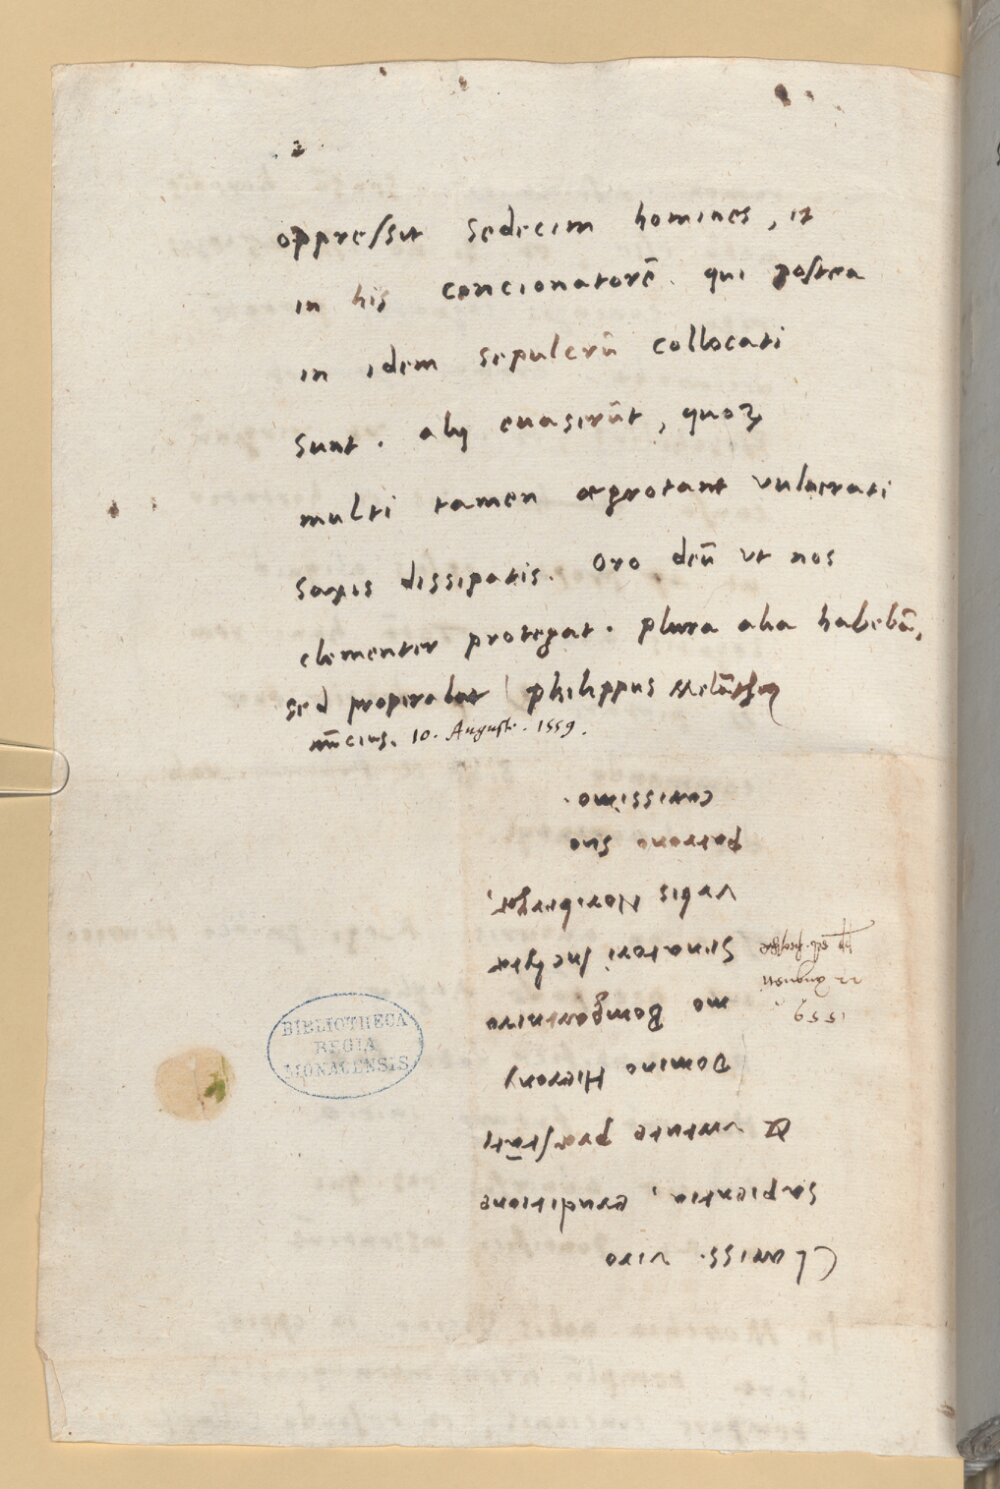 2
oppressit sedecim homines, et
in his concionatorē. qui postea
in idem sepulcrū collocati
sunt. alij euaserūt, quoꝝ
multi tamen ægrotant vulnerati
saxis dissipatis. Oro deū vt nos
clementer protegat. plura alia habebā,
sed properabat philippus Melāthon
nūcius. 10. Augusti. 1559.
Clariss. viro
sapientia, eruditione
et virtute præstāti
Domino Hierony
mo Bomgartnero
Senatori Inclytæ
vrbis Noribergæ,
patrono suo
carissimo.
1559
22 Augusti
BIBLIOTHECA
REGIA
MONACENSIS.